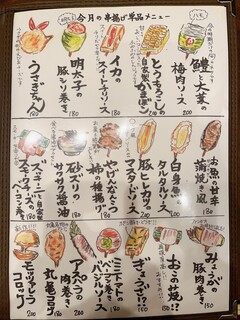 今月の串揚げ単品メニュー
ハモ
鱧と大葉の
梅肉ソース
200
とうもろこしの
自家製かき揚げ
200
イカの
スイートチリソース
180
明太子の
豚シソ巻き
180
うさぎちゃん
180
お魚の甘辛
蒲焼き風
180
白身魚の
タルタルソース
200
豚ヒレカツの
マスタードソース
200
やげんなんこつ
柿の種揚げ
180
砂ズリの
サクサク醤油
180
ズッキーニと
180
みょうがの
豚肉巻き
180
おこのみ焼!?
180
ぎょうざ!?
180
ミニトマトの
ベーコン巻き
バジルソース
180
アスパラの
肉巻き
180
丸亀コロッケ
モッツァレラ
コロッケ
180